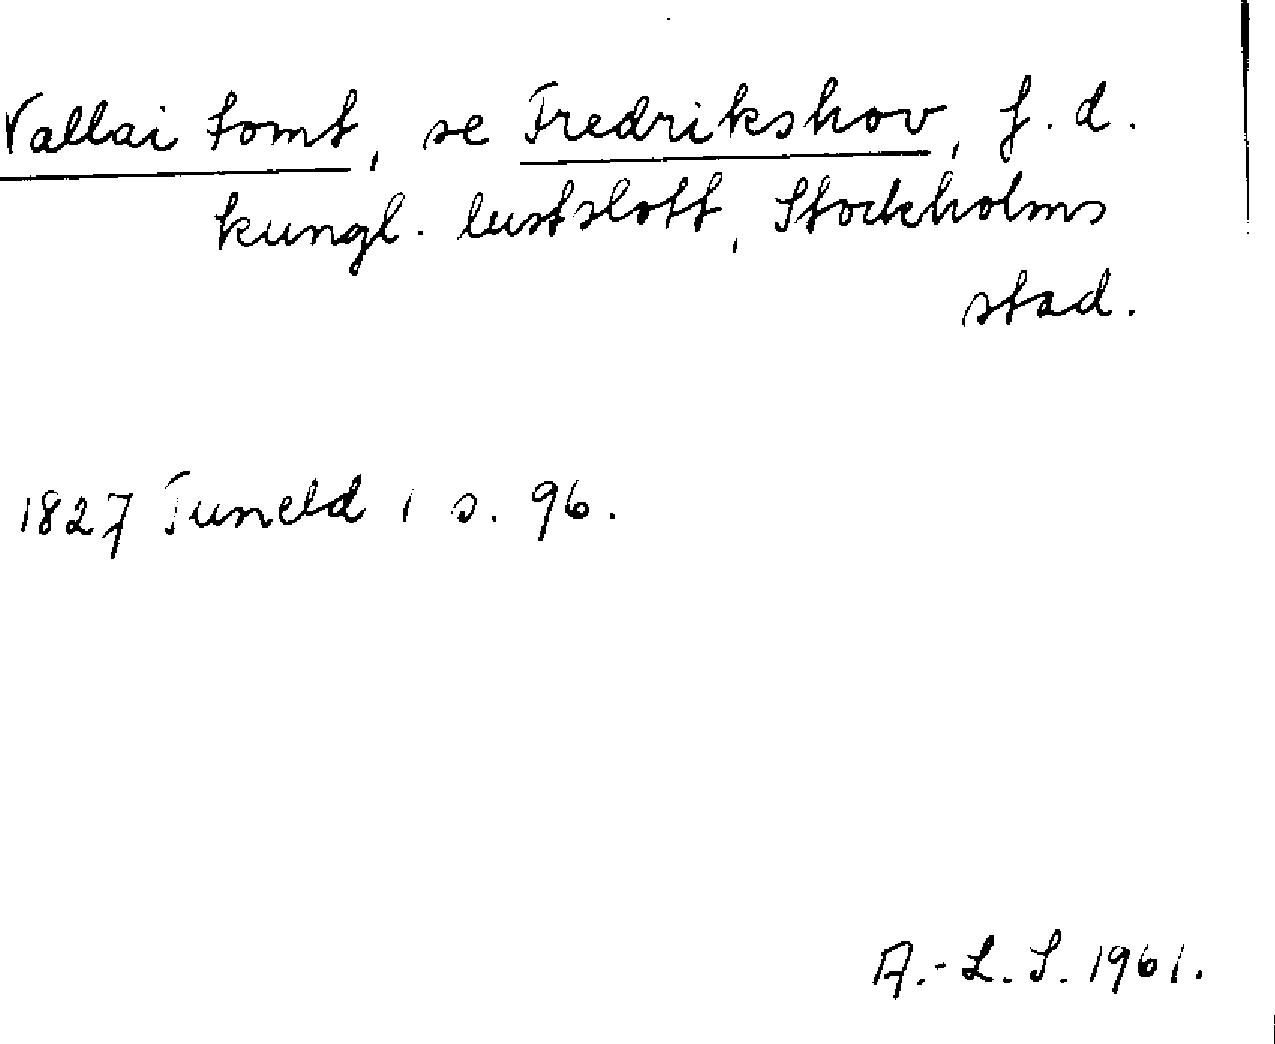 Vallai tomt, se Fredrikshov, f. d.
kungl. lustslott, Stockholms
stad.
1827 Tuneld 1 s. 96.
A.-L. S. 1961.